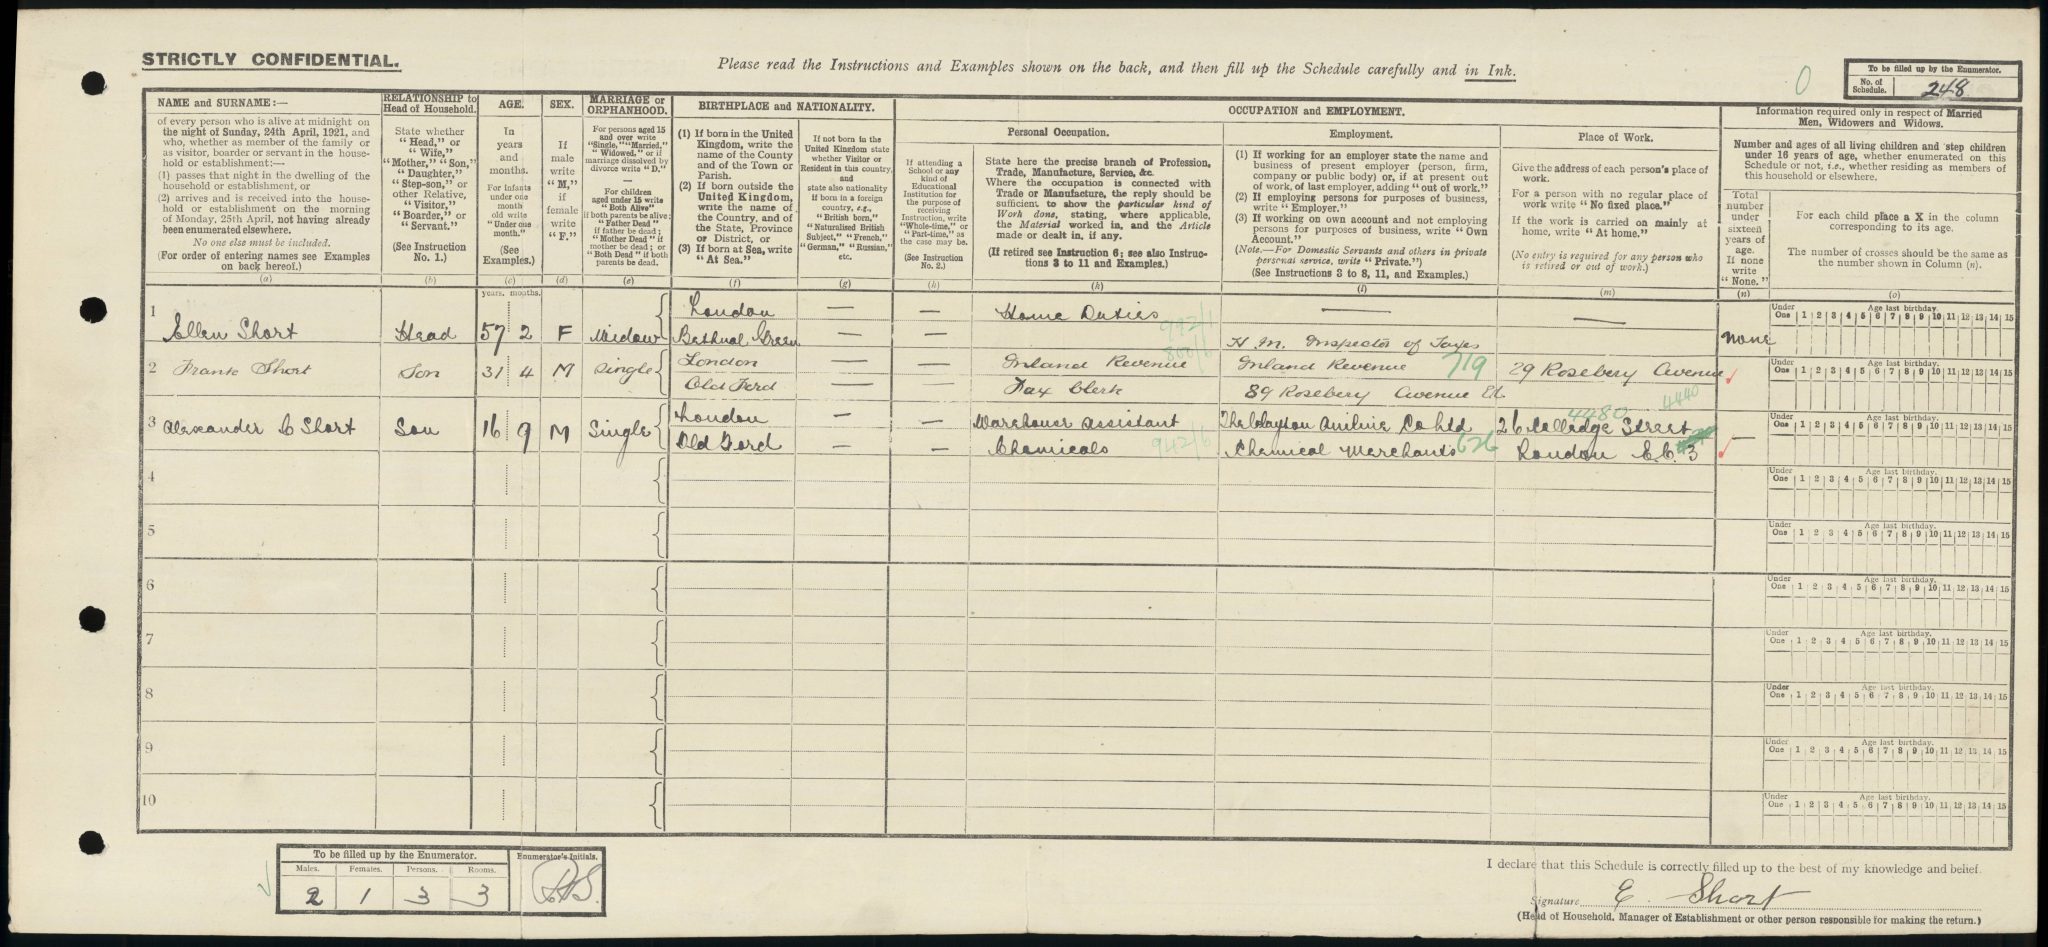 STRICTLY CONFIDENTIAL.
Please read the Instructions and Examples shown on the back, and then fill up the Schedule carefully and in Ink.
0
To be filled up by the Enumerator.
No. of Schedule. 248
NAME and SURNAME:—
of every person who is alive at midnight on
the night of Sunday, 24th April, 1921, and
who, whether as member of the family or
as visitor, boarder or servant in the house-
hold or establishment:—
(1) passes that night in the dwelling of the
household or establishment, or
(2) arrives and is received into the house-
hold or establishment on the morning
of Monday, 25th April, not having already
been enumerated elsewhere.
No one else must be included.
(For order of entering names see Examples
on back hereof.)
(a)
RELATIONSHIP to
Head of Household.
State whether
"Head," or
"Wife,"
"Mother," "Son,"
"Daughter,"
"Step-son," or
other Relative,
"Visitor,"
"Boarder," or
"Servant."
(See Instruction
No. 1.)
(b)
AGE.
In
years
and
months.
For infants
under one
month
old write
"Under one
month."
(See
Examples.)
(c)
SEX.
If
male
write
"M,"
if
female
write
"F."
(d)
MARRIAGE or
ORPHANHOOD.
For persons aged 15
and over write
"Single," "Married,"
"Widowed," or if
marriage dissolved by
divorce write "D."
For children
aged under 15 write
"Both Alive"
if both parents be alive;
"Father Dead"
if father be dead;
"Mother Dead" if
mother be dead; or
"Both Dead" if both
parents be dead.
(e)
BIRTHPLACE and NATIONALITY.
(1) If born in the United
Kingdom, write the
name of the County
and of the Town or
Parish.
(2) If born outside the
United Kingdom,
write the name of
the Country, and of
the State, Province
or District, or
(3) If born at Sea, write
"At Sea."
(f)
If not born in the
United Kingdom state
whether Visitor or
Resident in this country,
and
state also nationality
if born in a foreign
country, e.g.,
"British born,"
"Naturalised British
Subject," "French,"
"German," "Russian,"
etc.
(g)
OCCUPATION and EMPLOYMENT.
If attending a
School or any
kind of
Educational
Institution for
the purpose of
receiving
Instruction, write
"Whole-time," or
"Part-time," as
the case may be.
(See Instruction
No. 2.)
(h)
Personal Occupation.
State here the precise branch of Profession,
Trade, Manufacture, Service, &c.
Where the occupation is connected with
Trade or Manufacture, the reply should be
sufficient to show the particular kind of
Work done, stating, where applicable,
the Material worked in, and the Article
made or dealt in, if any.
(If retired see Instruction 6; see also Instruc-
tions 3 to 11 and Examples.)
(k)
Employment.
(1) If working for an employer state the name and
business of present employer (person, firm,
company or public body) or, if at present out
of work, of last employer, adding "out of work."
(2) If employing persons for purposes of business,
write "Employer."
(3) If working on own account and not employing
persons for purposes of business, write "Own
Account."
(Note.—For Domestic Servants and others in private
personal service, write "Private.")
(See Instructions 3 to 8, 11, and Examples.)
(l)
Place of Work.
Give the address of each person's place of
work.
For a person with no regular place of
work write "No fixed place."
If the work is carried on mainly at
home, write "At home."
(No entry is required for any person who
is retired or out of work.)
(m)
Information required only in respect of Married
Men, Widowers and Widows.
Number and ages of all living children and step children
under 16 years of age, whether enumerated on this
Schedule or not, i.e., whether residing as members of
this household or elsewhere.
Total
number
under
sixteen
years of
age.
If none
write
"None."
(n)
For each child place a X in the column
corresponding to its age.
The number of crosses should be the same as
the number shown in Column (n).
(o)
years. months.
1 Ellen Short Head 57 2 F Widow London — — Home Duties — — None
Bethnal Green — — 942/1 H. M. Inspector of Taxes
2 Frank Short Son 31 4 M Single London — — Inland Revenue 800/6 Inland Revenue 719 29 Rosebery Avenue
Old Ford — — Tax Clerk 89 Rosebery Avenue EC 4440
3 Alexander C Short Son 16 9 M Single London — — Warehouse assistant The Clayton Aniline Co Ltd 26 Colledge Street 4480 —
Old Ford — — Chemicals 942/6 Chemical Merchants 626 London E.C. 3
4
5
6
7
8
9
10
Under One Age last birthday. 1 2 3 4 5 6 7 8 9 10 11 12 13 14 15
Under One Age last birthday. 1 2 3 4 5 6 7 8 9 10 11 12 13 14 15
Under One Age last birthday. 1 2 3 4 5 6 7 8 9 10 11 12 13 14 15
Under One Age last birthday. 1 2 3 4 5 6 7 8 9 10 11 12 13 14 15
Under One Age last birthday. 1 2 3 4 5 6 7 8 9 10 11 12 13 14 15
Under One Age last birthday. 1 2 3 4 5 6 7 8 9 10 11 12 13 14 15
Under One Age last birthday. 1 2 3 4 5 6 7 8 9 10 11 12 13 14 15
Under One Age last birthday. 1 2 3 4 5 6 7 8 9 10 11 12 13 14 15
Under One Age last birthday. 1 2 3 4 5 6 7 8 9 10 11 12 13 14 15
Under One Age last birthday. 1 2 3 4 5 6 7 8 9 10 11 12 13 14 15
To be filled up by the Enumerator.
Males. Females. Persons. Rooms.
2 1 3 3
Enumerator's Initials.
I declare that this Schedule is correctly filled up to the best of my knowledge and belief.
Signature E. Short
(Head of Household, Manager of Establishment or other person responsible for making the return.)